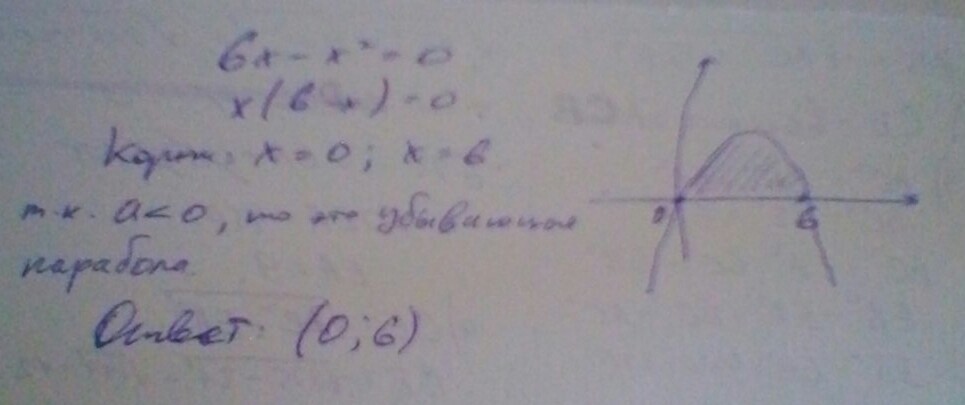 6x - x² = 0
x(6 - x) = 0
Корни: x = 0; x = 6
т.к. a < 0, то это убывающая
парабола.
Ответ: (0; 6)
0 6